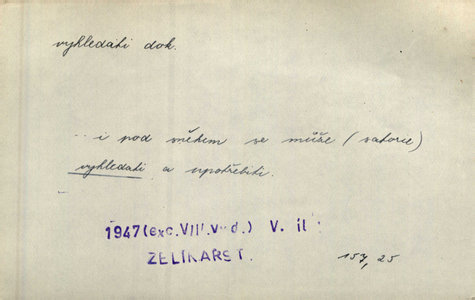 vyhledati dok.
.. i pod sněhem se může (satorie)
vyhledati a upotřebiti.
1947 (exc. VIII. V. d.) V. il :
ZELINAŘST.
157, 25